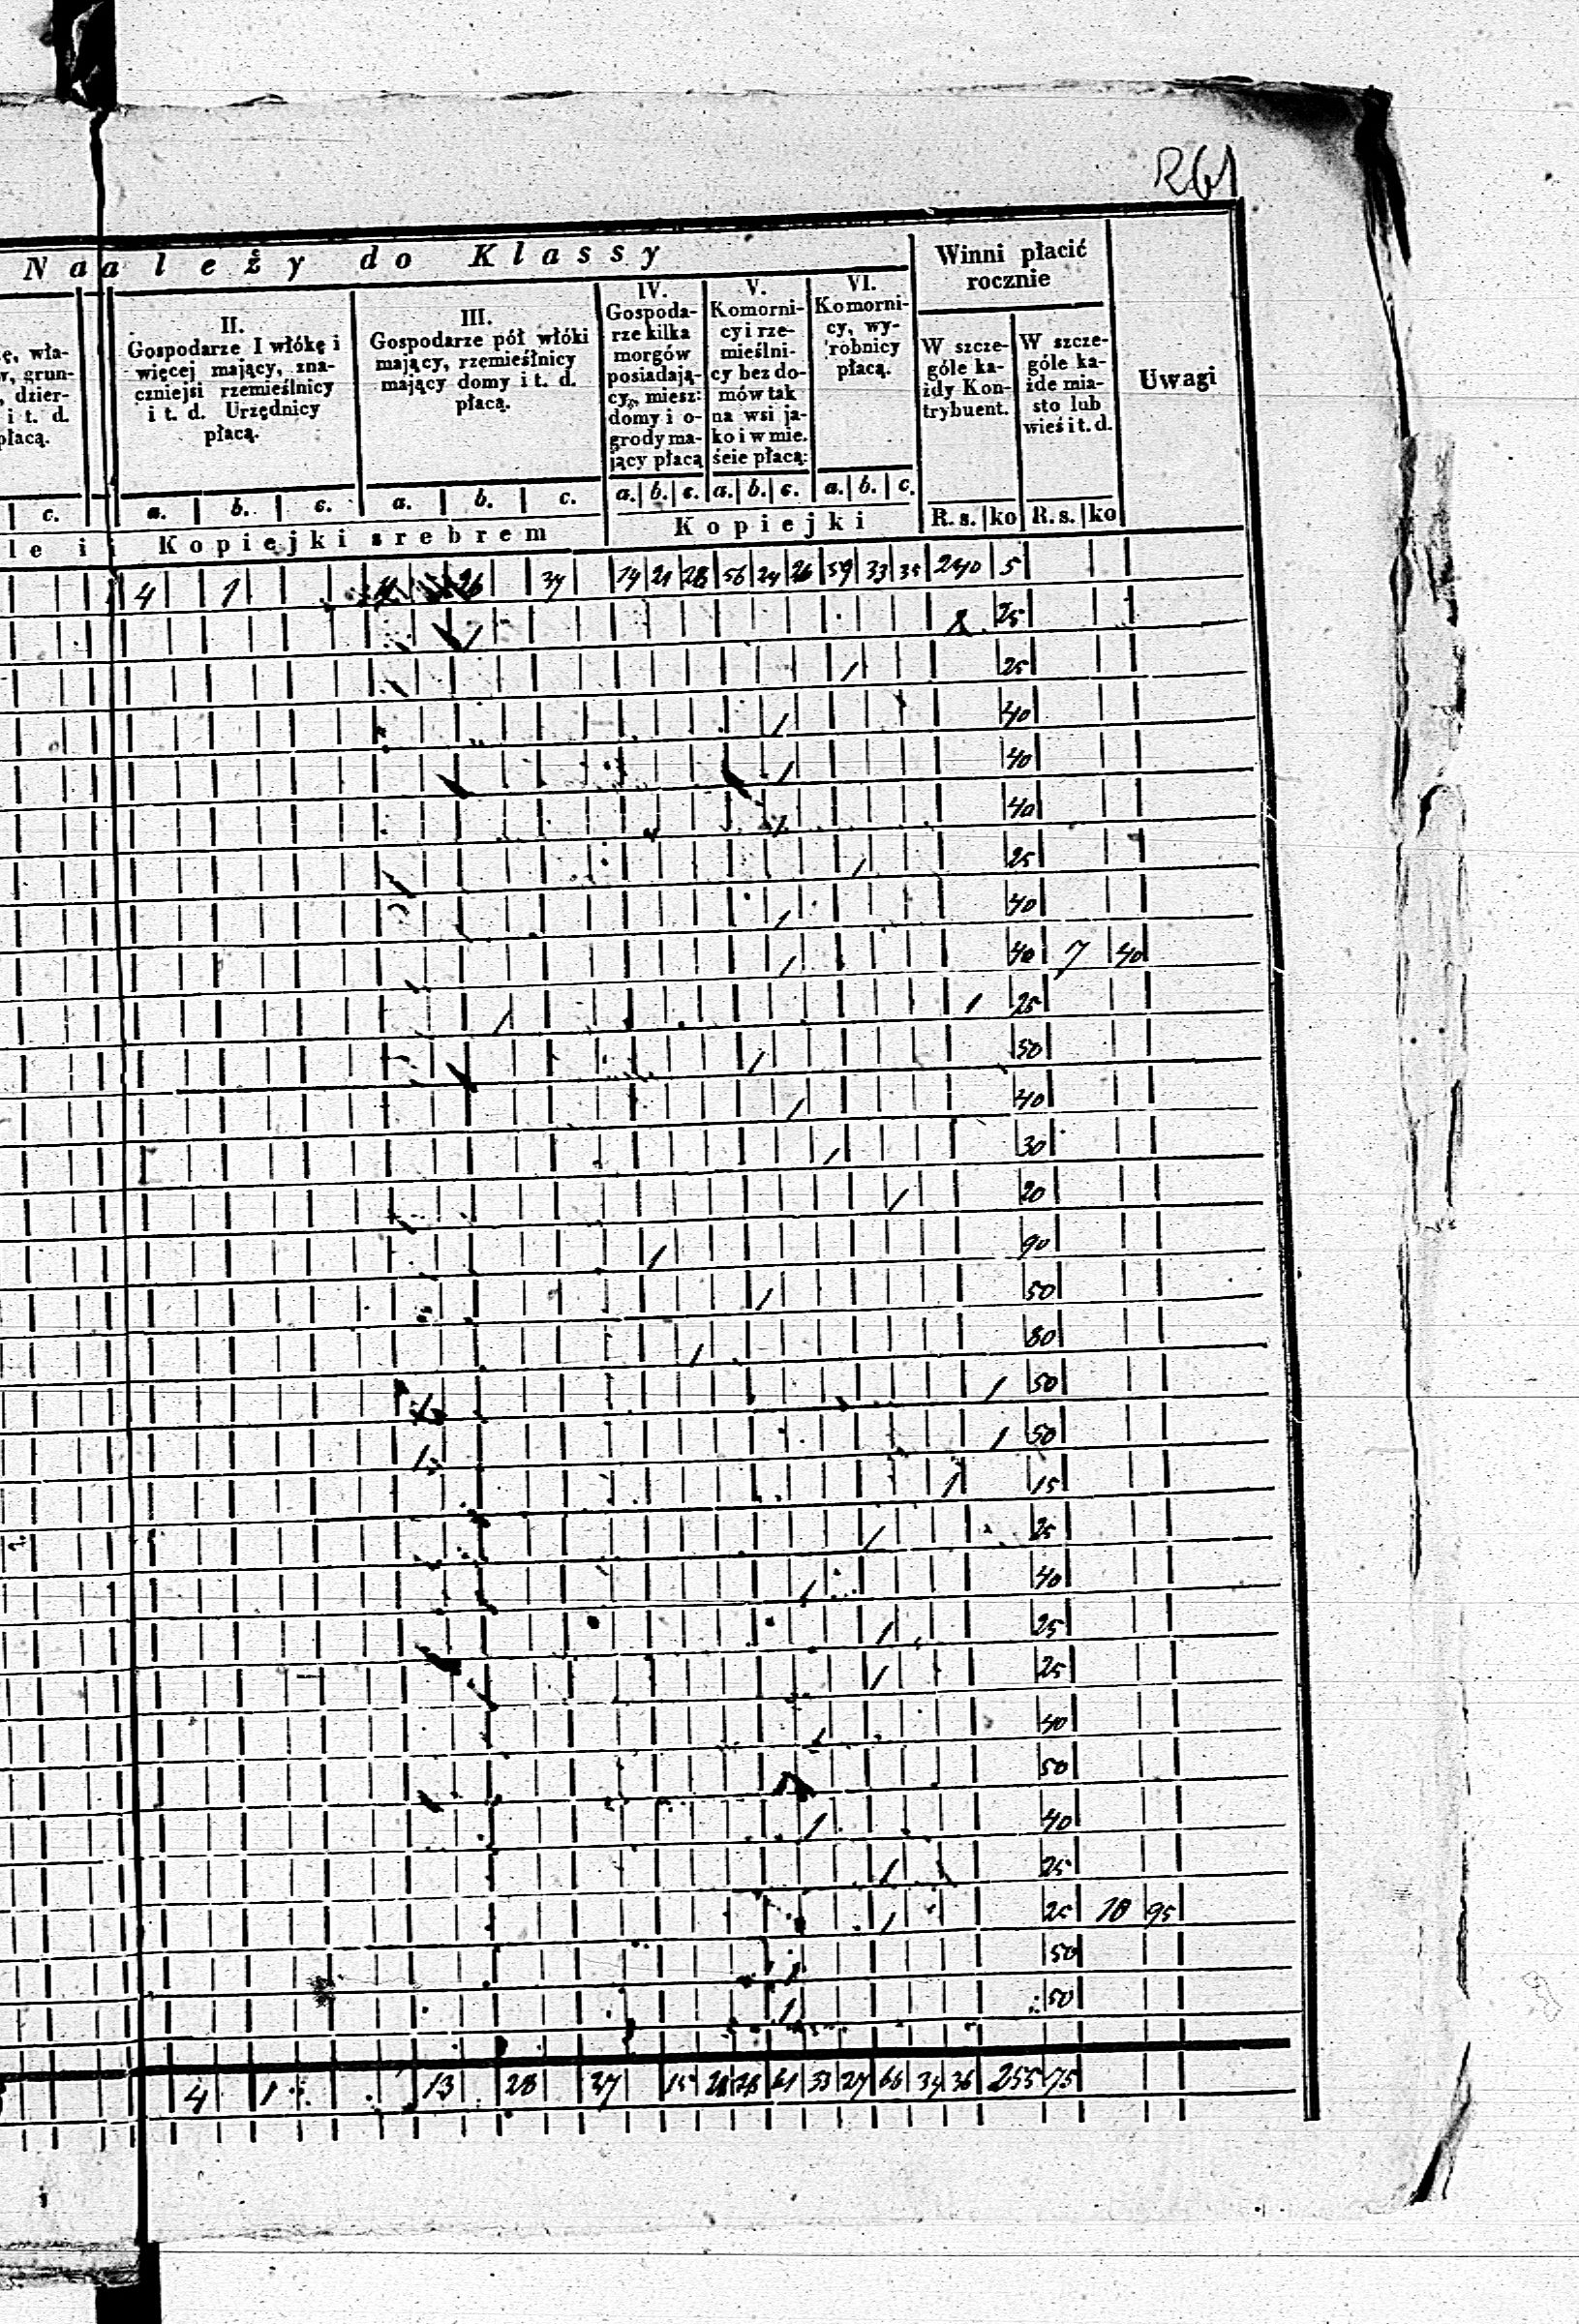 261
Naależy do Klassy
Winni płacić
rocznie
Uwagi
ę, wła-
w, grun-
, dzier-
i t. d.
płacą.
II.
Gospodarze I włókę i
więcej mający, zna-
czniejsi rzemieślnicy
i t. d. Urzędnicy
płacą.
III.
Gospodarze pół włóki
mający, rzemieślnicy
mający domy i t. d.
płacą.
IV.
Gospoda-
rze kilka
morgów
posiadają-
cy, miesz:
domy i o-
grody ma-
jący płacą
V.
Komorni-
cy i rze-
mieślni-
cy bez do-
mów tak
na wsi ja-
ko i w mie.
ście płacą:
VI.
Komorni-
cy, wy-
robnicy
płacą.
W szcze-
góle ka-
żdy Kon-
trybuent.
W szcze-
góle ka-
żde mia-
sto lub
wieś i t. d.
c. a. b. c. a. b. c. a. b. c. a. b. c. a. b. c. R. s. ko R. s. ko
le i i Kopiejki srebrem Kopiejki
4 1 26 34 14 21 28 56 24 26 59 33 35 240 5
25
/ 25
/ 40
/ 40
/ 40
/ 25
/ 40
/ 40 7 40
/ 1 25
/ 50
/ 40
/ 30
/ 20
/ 90
/ 50
/ 80
/ 1 50
/ 1 50
/ 15
/ 25
/ 40
/ 25
/ 25
/ 40
50
/ 40
/ 25
/ 25 18 95
/ 50
/ 50
4 1 13 28 37 15 28 61 33 27 66 34 36 255 75